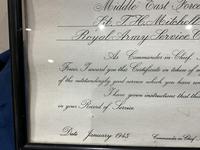 Middle East Force
Sjt T.H. Mitchell
Royal Army Service C
As Commander-in-Chief,
Force, I award you this Certificate in token of my
of the outstandingly good service which you have
I have given instructions that this
in your Record of Service.
Date January 1943
Commander-in-Chief,